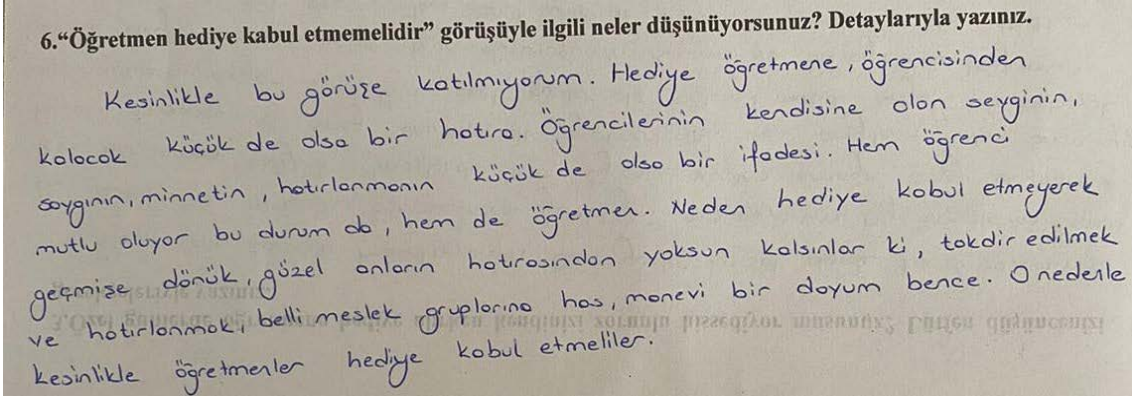 6.“Öğretmen hediye kabul etmemelidir” görüşüyle ilgili neler düşünüyorsunuz? Detaylarıyla yazınız.
Kesinlikle bu görüşe katılmıyorum. Hediye öğretmene, öğrencisinden
kalacak küçük de olsa bir hatıra. Öğrencilerinin kendisine olan sevginin,
saygının, minnetin, hatırlanmanın küçük de olsa bir ifadesi. Hem öğrenci
mutlu oluyor bu durum da, hem de öğretmen. Neden hediye kabul etmeyerek
geçmişe dönük, güzel anların hatırasından yoksun kalsınlar ki, takdir edilmek
ve hatırlanmak, belli meslek gruplarına has, manevi bir doyum bence. O nedenle
kesinlikle öğretmenler hediye kabul etmeliler.